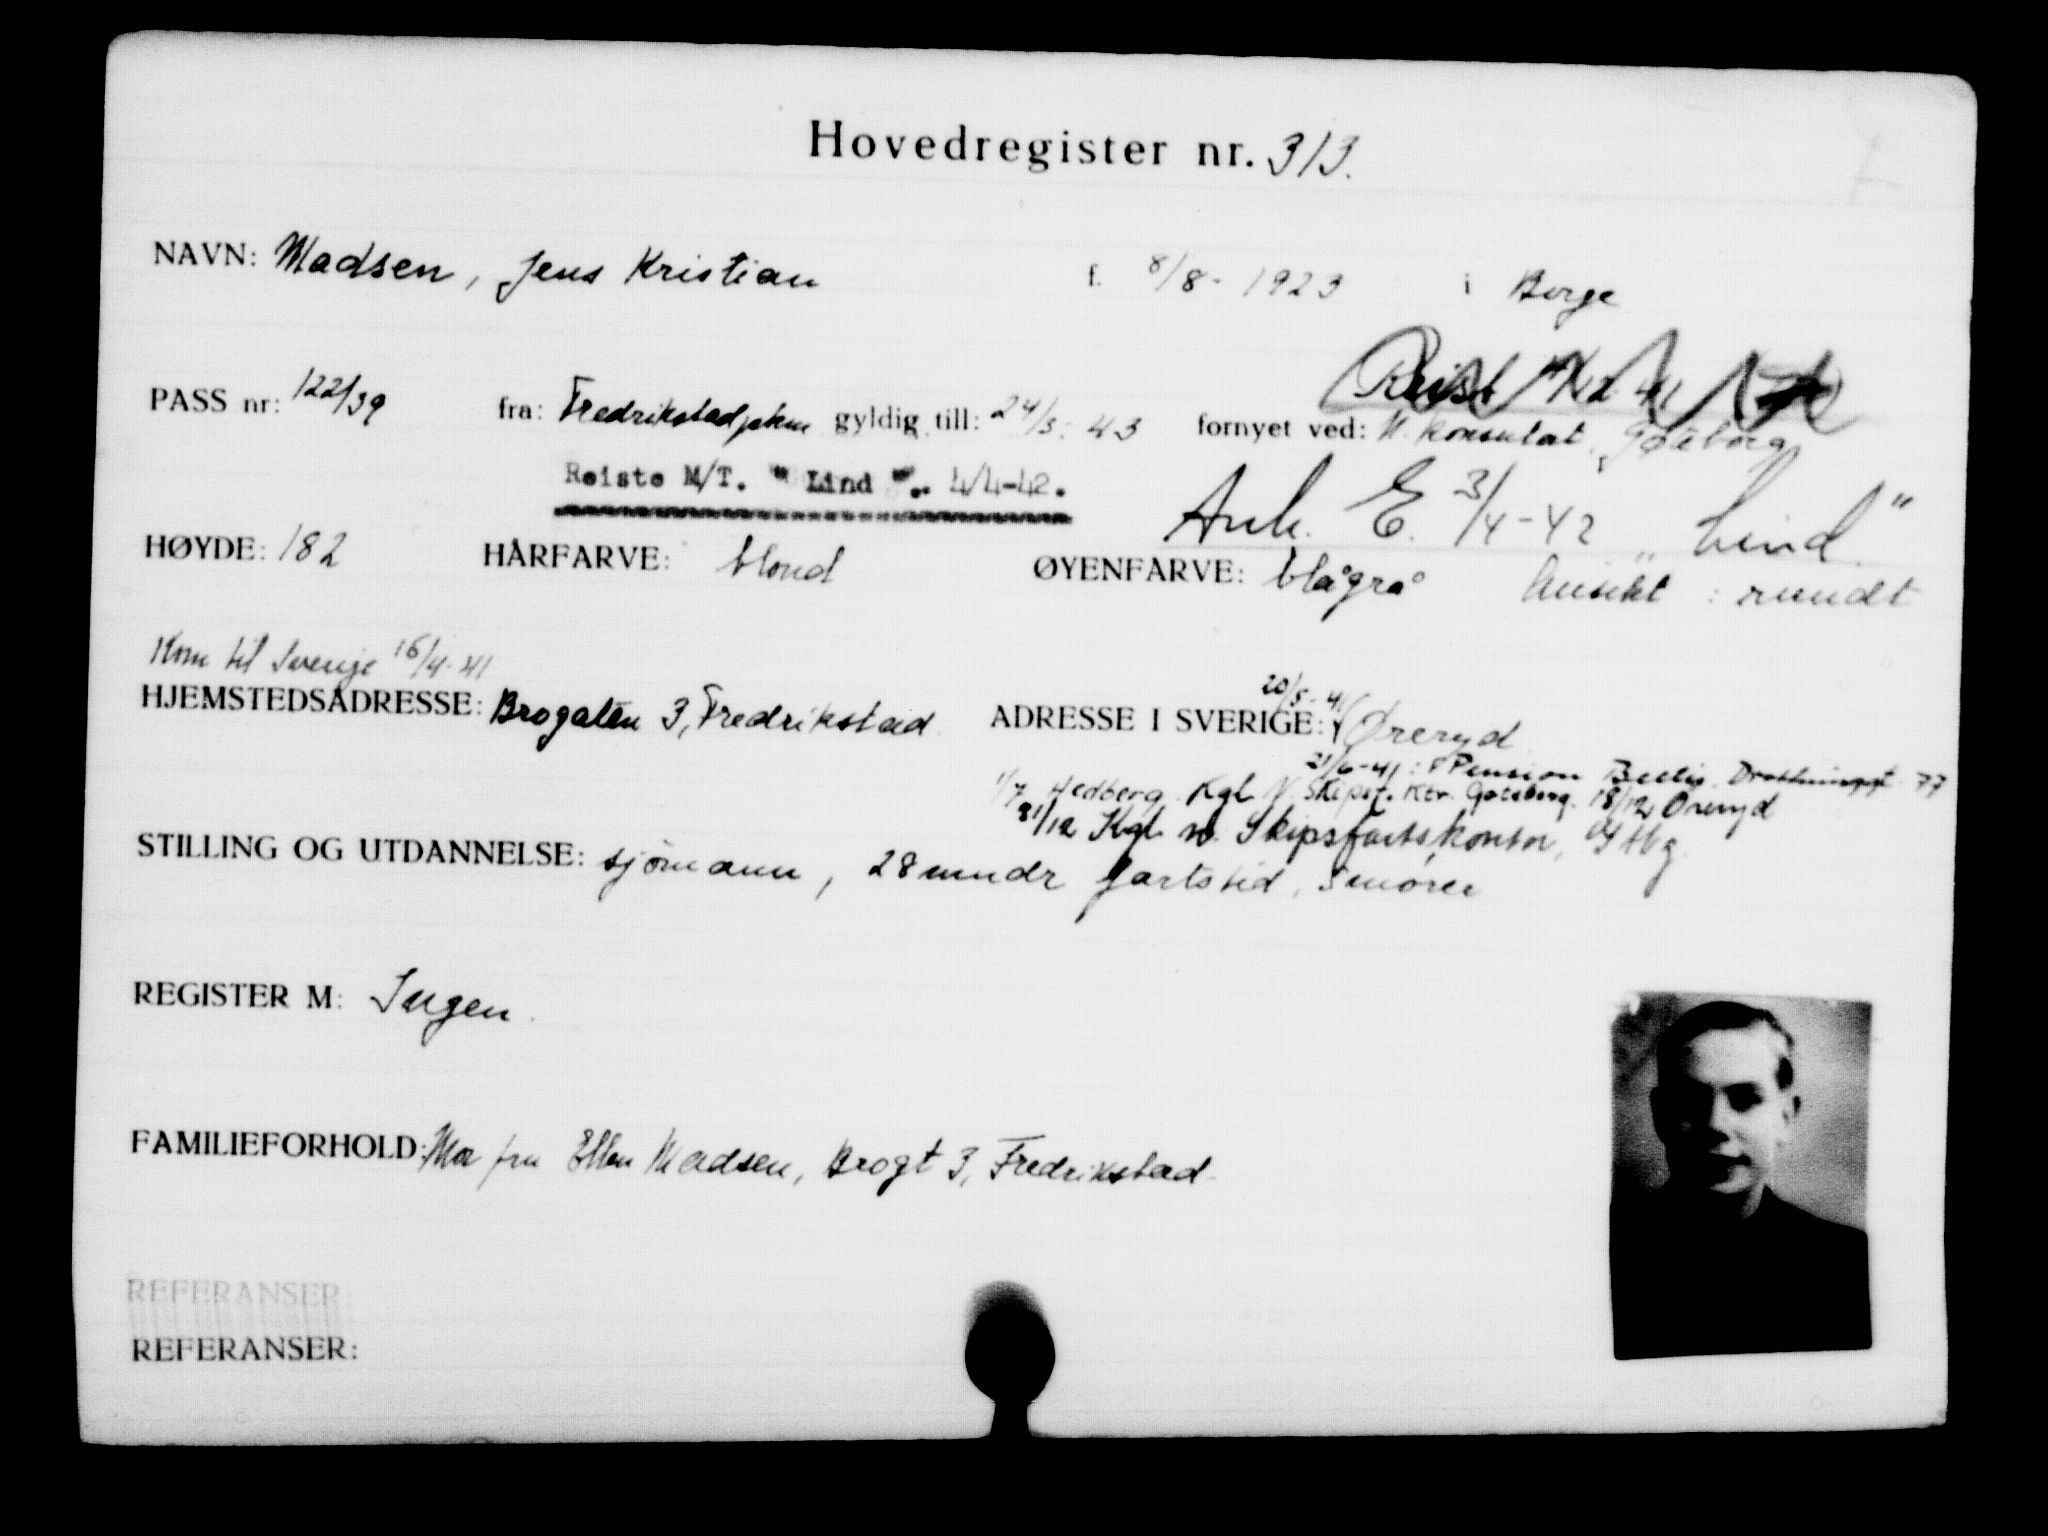 Hovedregister nr. 313.
NAVN: Madsen, Jens Kristian f. 8/8 - 1923 i Borge
Reist
PASS nr: 122/39 fra: Fredrikstad pkm gyldig till: 24/3. 43 fornyet ved: N. Konsulat, Göteborg
Reiste M/T. "Lind".. 4/4-42.
Ank. E. 3/4-42 „Lind"
HØYDE: 182 HÅRFARVE: blond ØYENFARVE: blågrå Ansikt: rundt
Kom til Sverige 16/4-41
HJEMSTEDSADRESSE: Brogaten 3, Fredrikstad ADRESSE I SVERIGE: 20/5-41 Øreryd
21/6-41: Pension Drottninggt 77
1/7 Hedberg. Kgl. N. Skipsf. Ktr. Göteborg. 18/12 Øreryd
31/12 Kgl. N. Skipsfartskontor, Gtbg.
STILLING OG UTDANNELSE: sjömann, 28 mndr fartstid, Smører
REGISTER M: Ingen.
FAMILIEFORHOLD: Mor fru Ellen Madsen, Brogt 3, Fredrikstad.
REFERANSER:
REFERANSER: